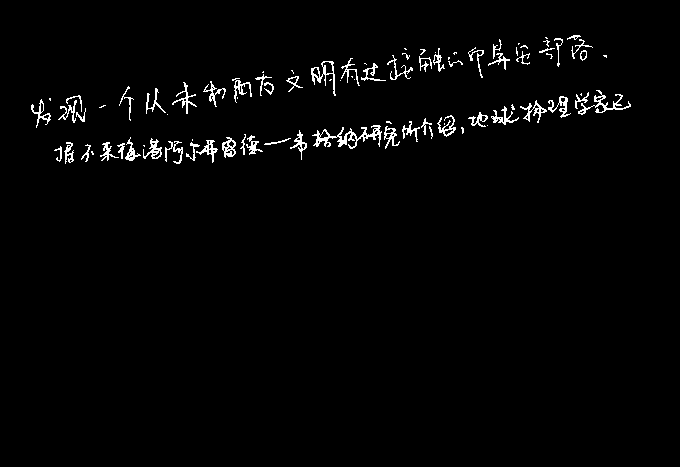 发现一个从未和西方文明有过接触的印第安部落.
据不来梅港阿尔弗雷德一韦格纳研究所介绍,地球物理学家已